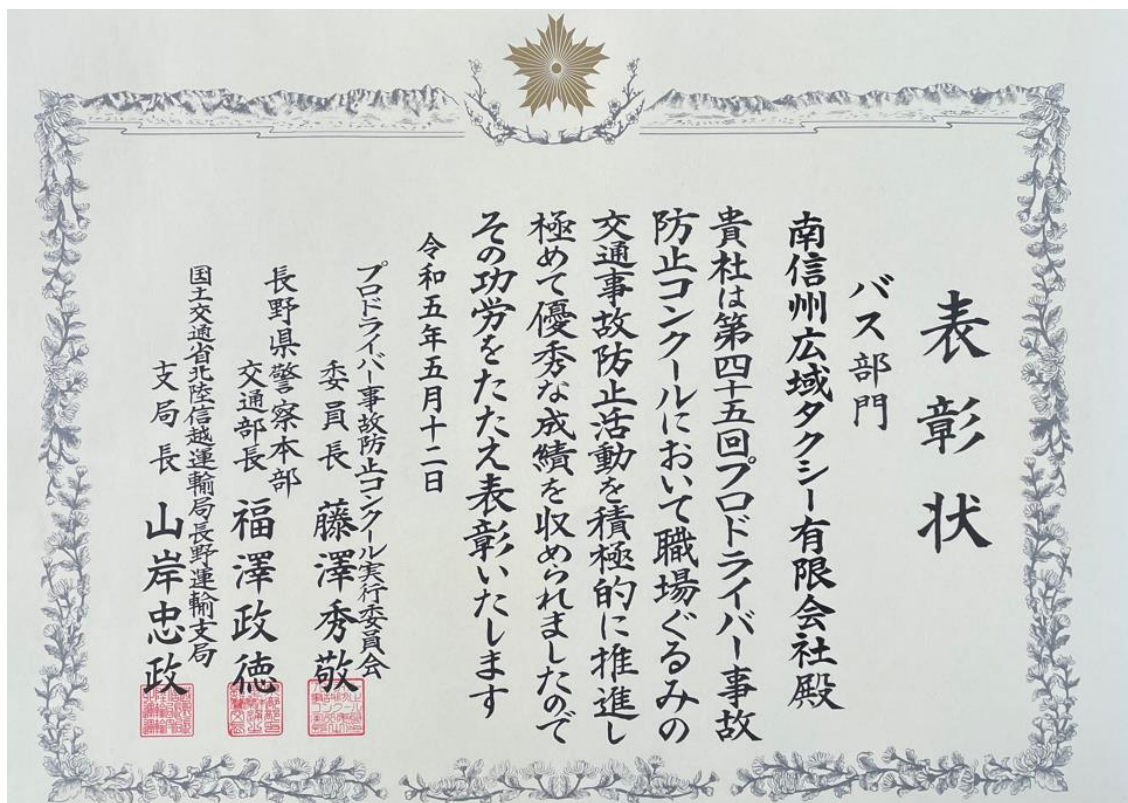 表彰状
バス部門
南信州広域タクシー有限会社殿
貴社は第四十五回プロドライバー事故
防止コンクールにおいて職場ぐるみの
交通事故防止活動を積極的に推進し
極めて優秀な成績を収められましたので
その功労をたたえ表彰いたします
令和五年五月十二日
プロドライバー事故防止コンクール実行委員会
委員長 藤澤秀敬
長野県警察本部
交通部長 福澤政徳
国土交通省北陸信越運輸局長野運輸支局
支局長 山岸忠政